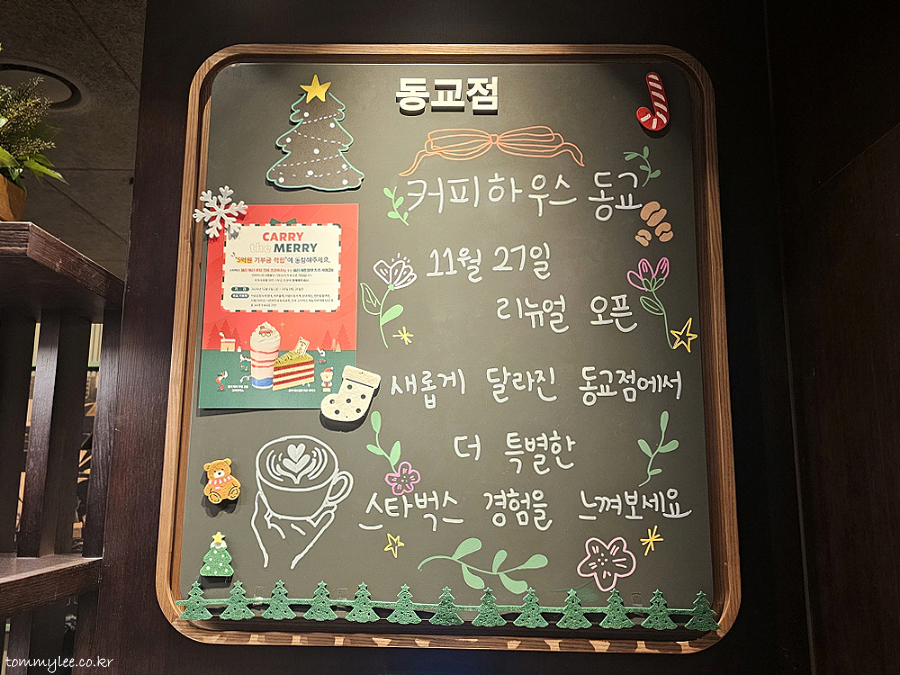 동교점
커피하우스 동교
11월 27일
리뉴얼 오픈
새롭게 달라진 동교점에서
더 특별한
스타벅스 경험을 느껴보세요
CARRY
the MERRY
"3억원 기부금 적립"에 동참해주세요.
tommylee.co.kr